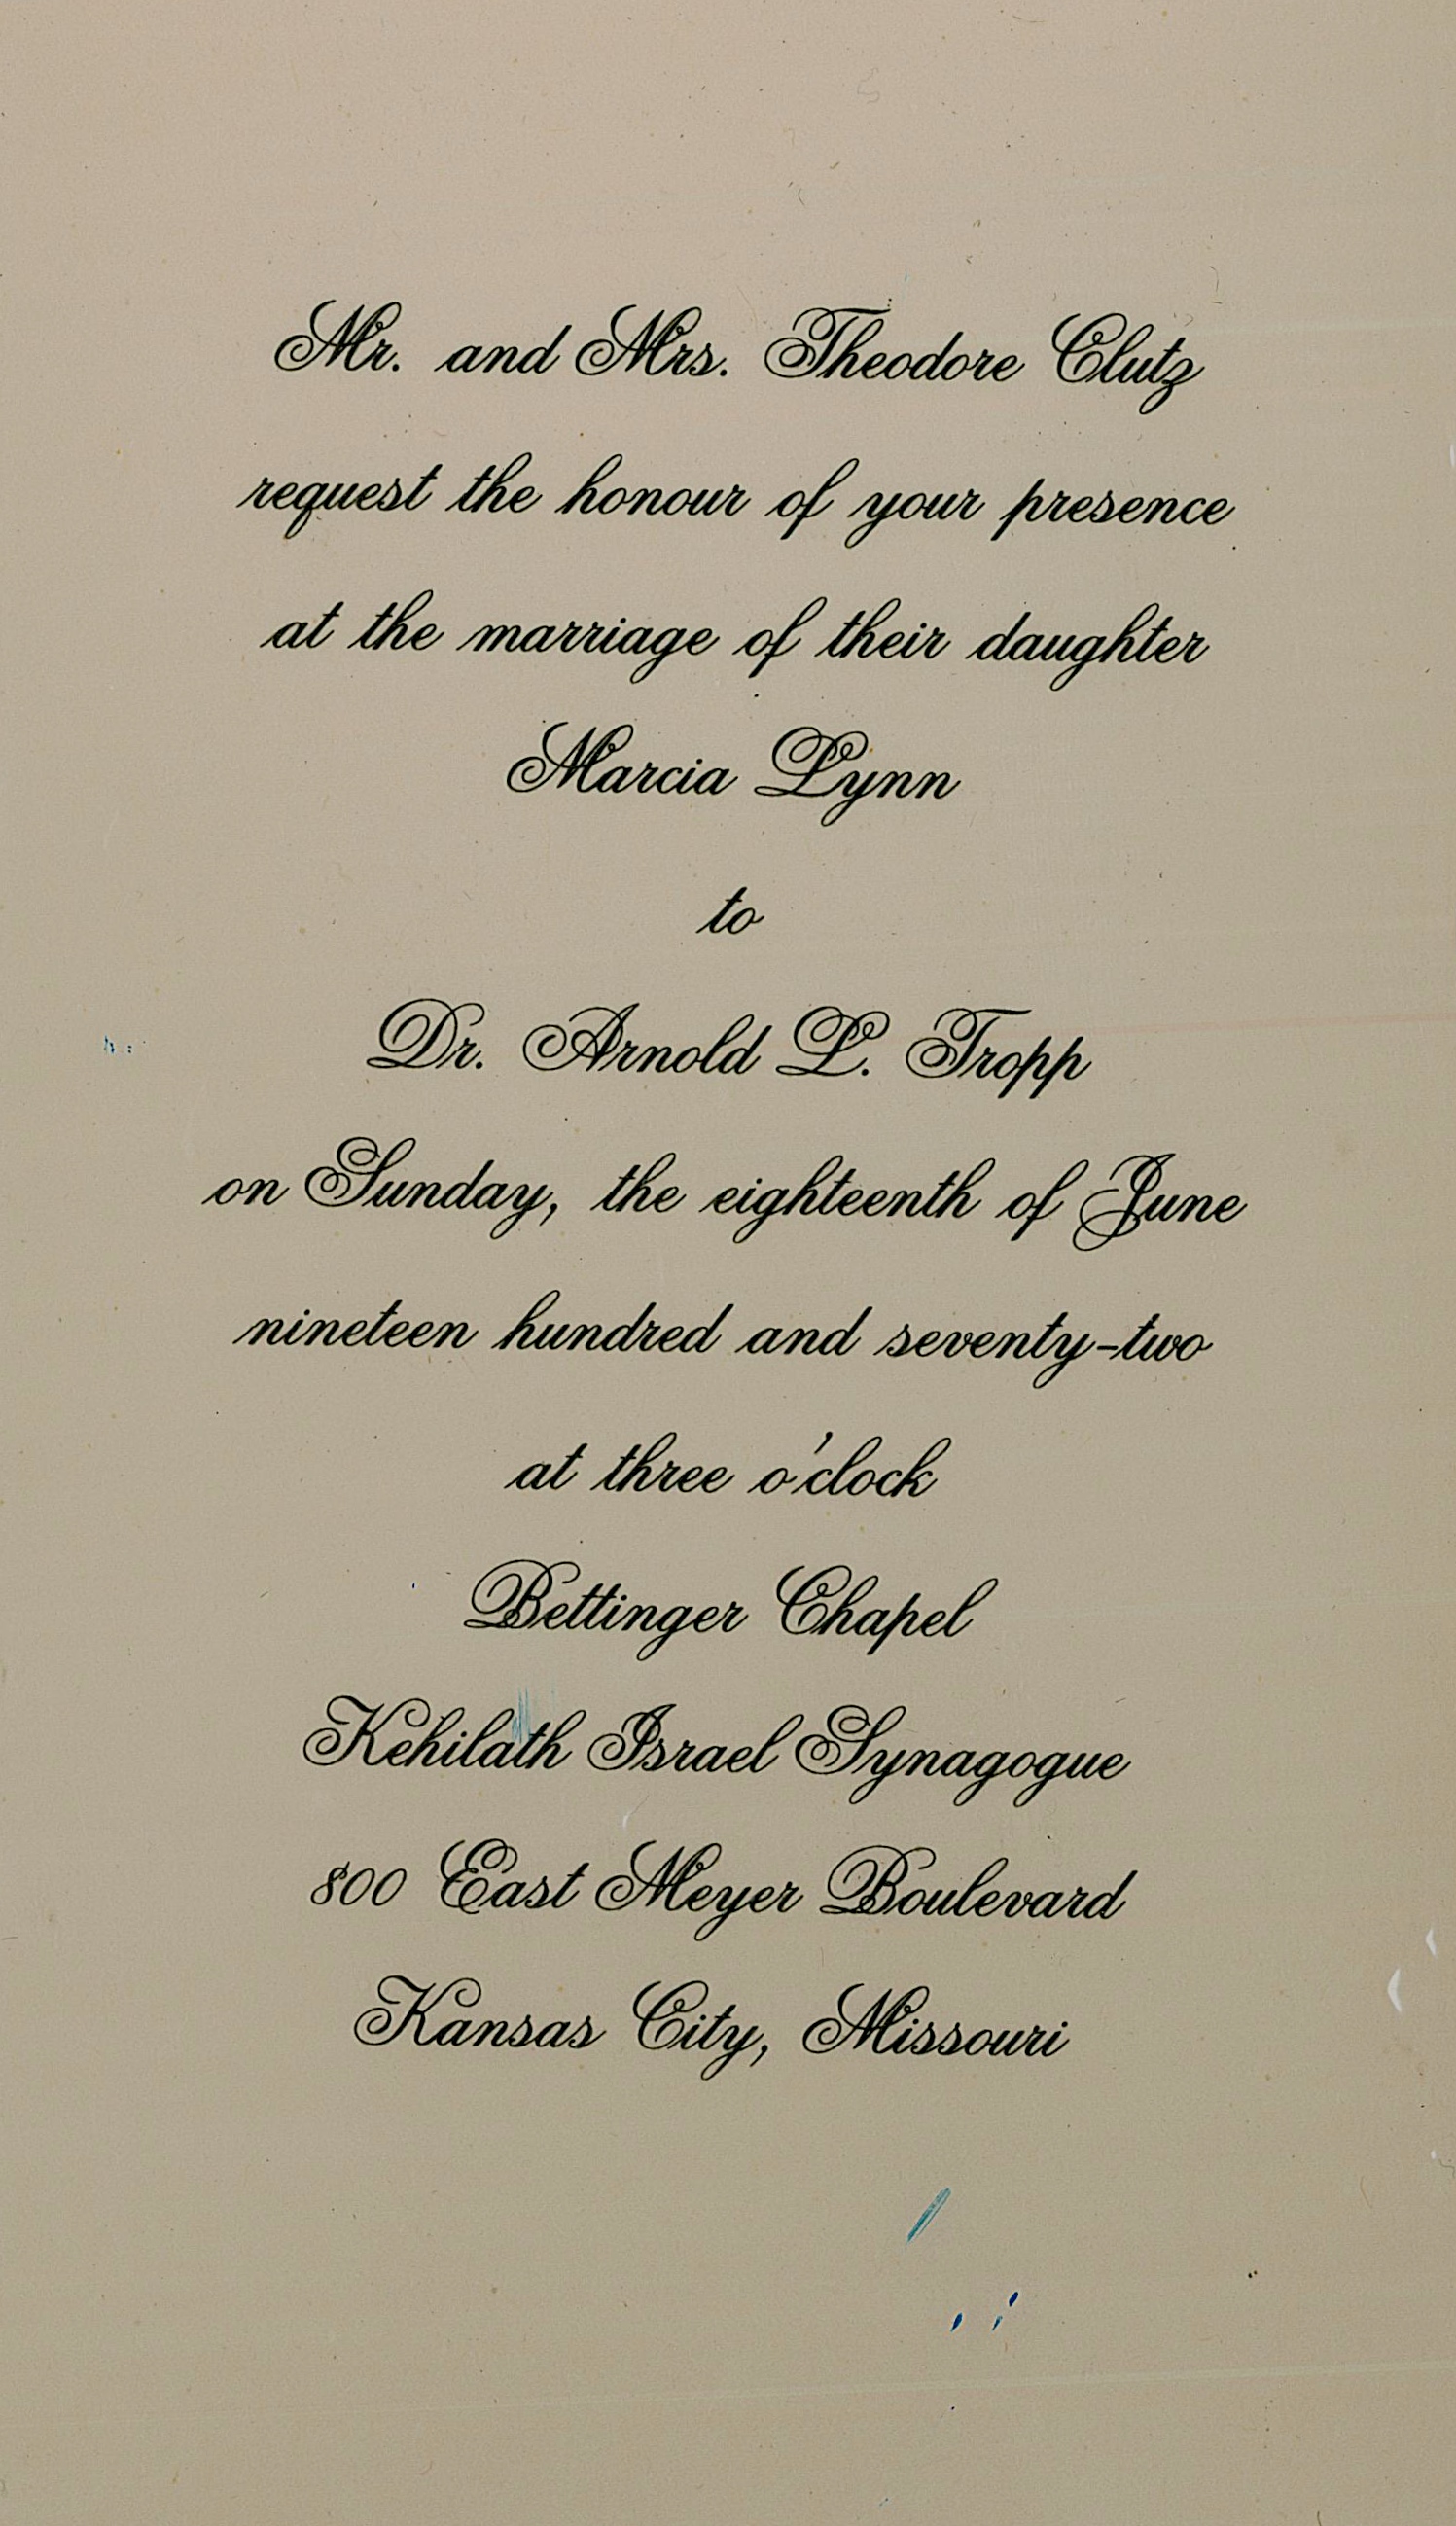 Mr. and Mrs. Theodore Clutz
request the honour of your presence
at the marriage of their daughter
Marcia Lynn
to
Dr. Arnold L. Tropp
on Sunday, the eighteenth of June
nineteen hundred and seventy-two
at three o'clock
Bettinger Chapel
Kehilath Israel Synagogue
800 East Meyer Boulevard
Kansas City, Missouri